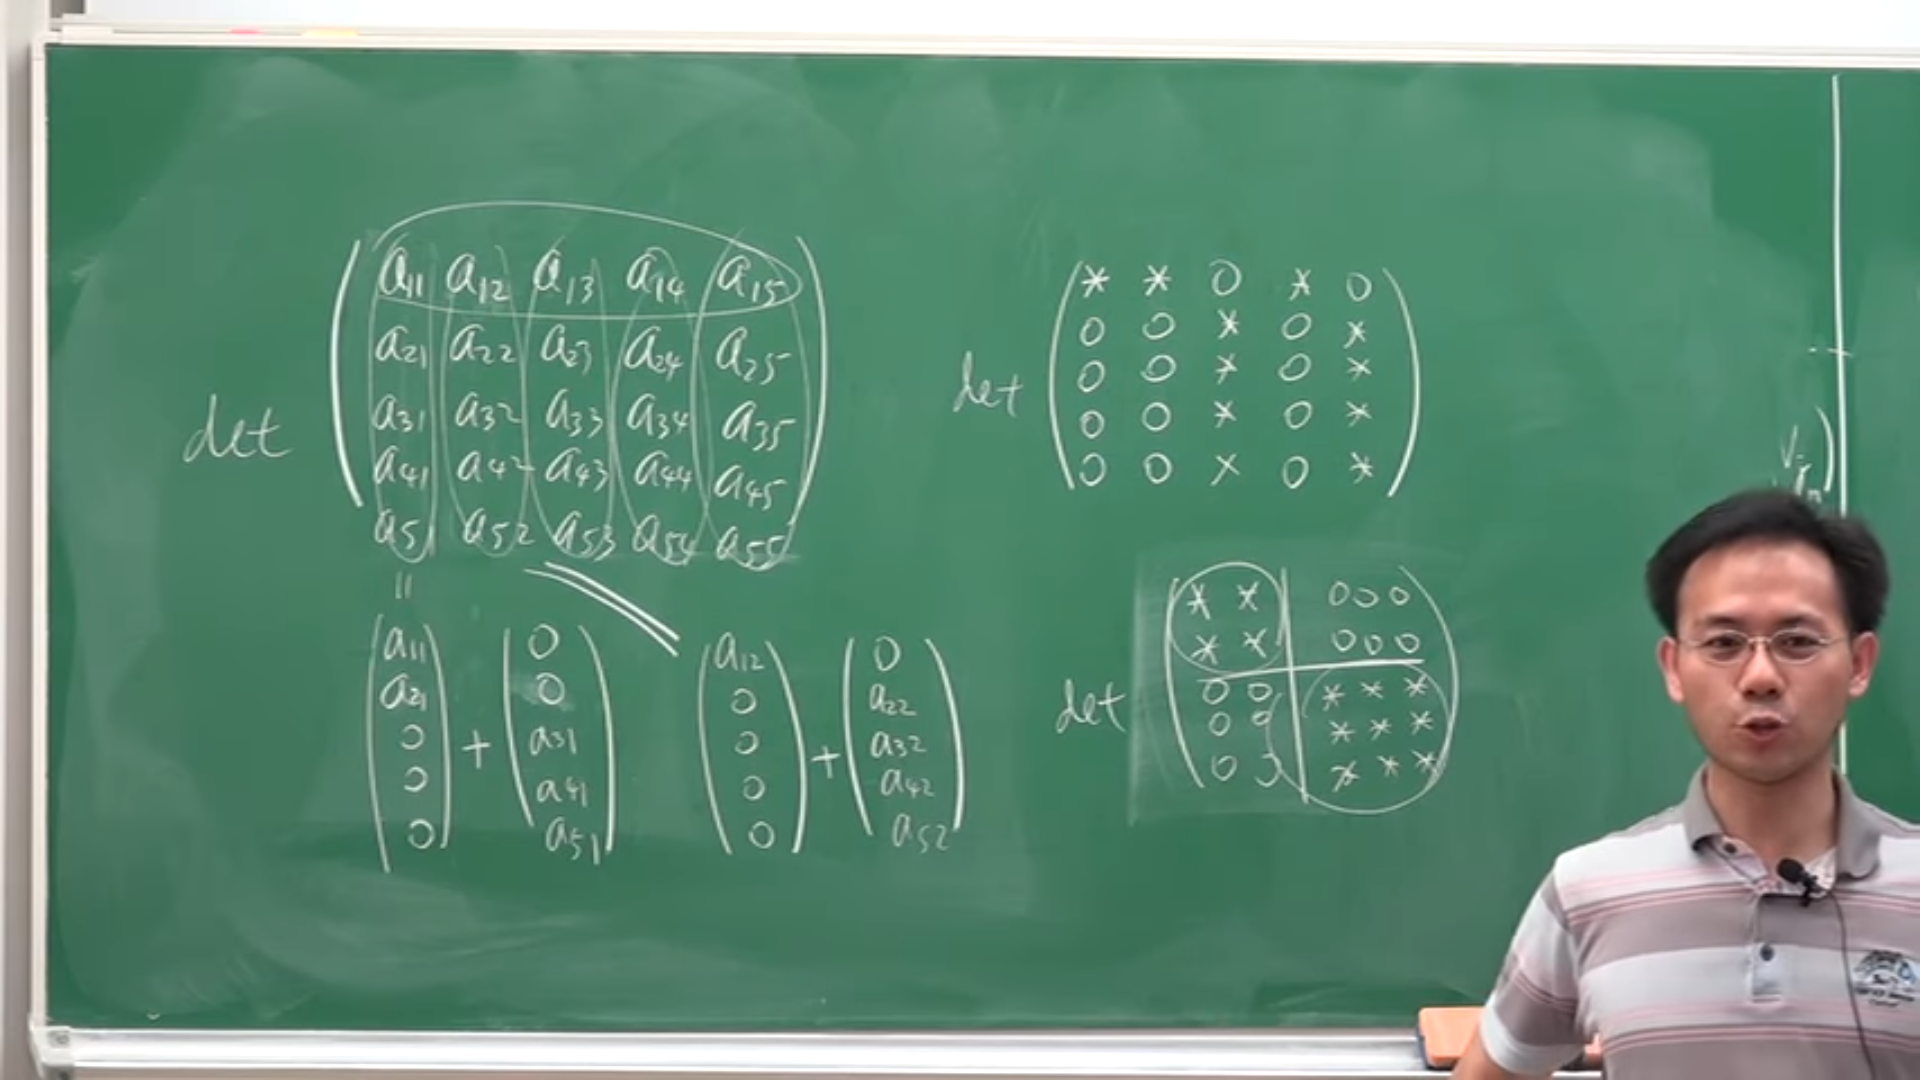 det
a11 a12 a13 a14 a15
a21 a22 a23 a24 a25
a31 a32 a33 a34 a35
a41 a42 a43 a44 a45
a51 a52 a53 a54 a55
=
a11
a21
0
0
0
+
0
0
a31
a41
a51
a12
0
0
0
0
+
0
a22
a32
a42
a52
det
* * 0 * 0
0 0 * 0 *
0 0 * 0 *
0 0 * 0 *
0 0 × 0 *
det
* * 0 0 0
* * 0 0 0
0 0 * * *
0 0 * * *
0 0 * * *